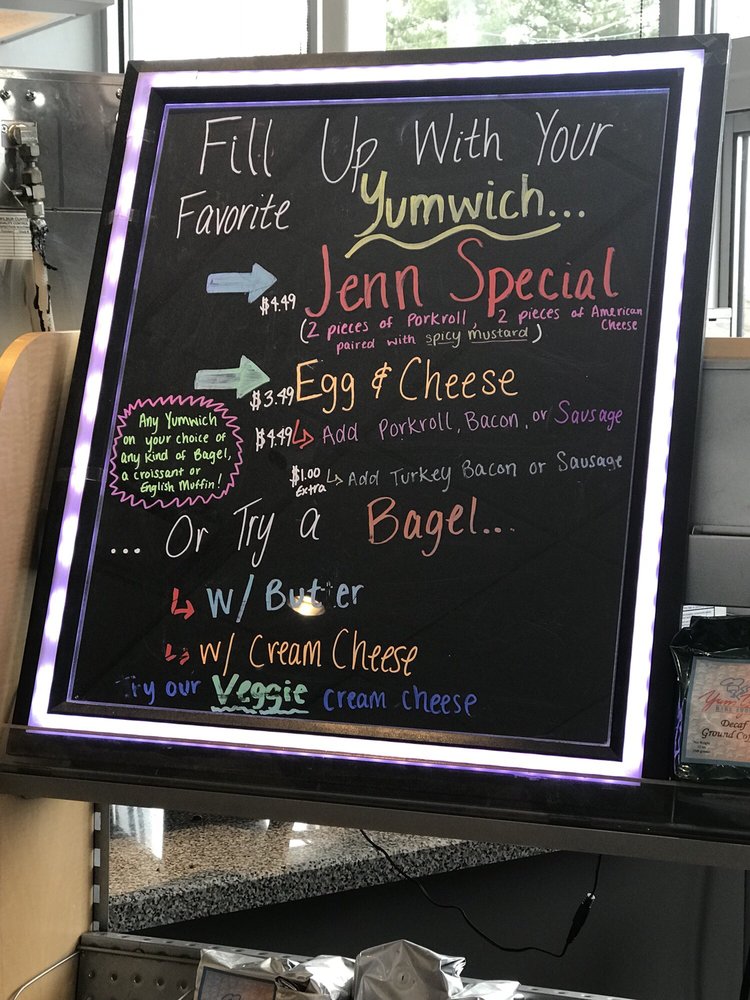 Fill Up With Your
Favorite Yumwich...
$4.49 Jenn Special
(2 pieces of Porkroll, 2 pieces of American
Cheese
paired with spicy mustard)
$3.49 Egg & Cheese
$4.49 Add Porkroll, Bacon, or Sausage
$1.00
Extra Add Turkey Bacon or Sausage
Any Yumwich
on your choice of
any kind of Bagel,
a croissant or
English Muffin!
... Or Try a Bagel...
w/ Butter
w/ Cream Cheese
Try our Veggie cream cheese
Decaf
Ground